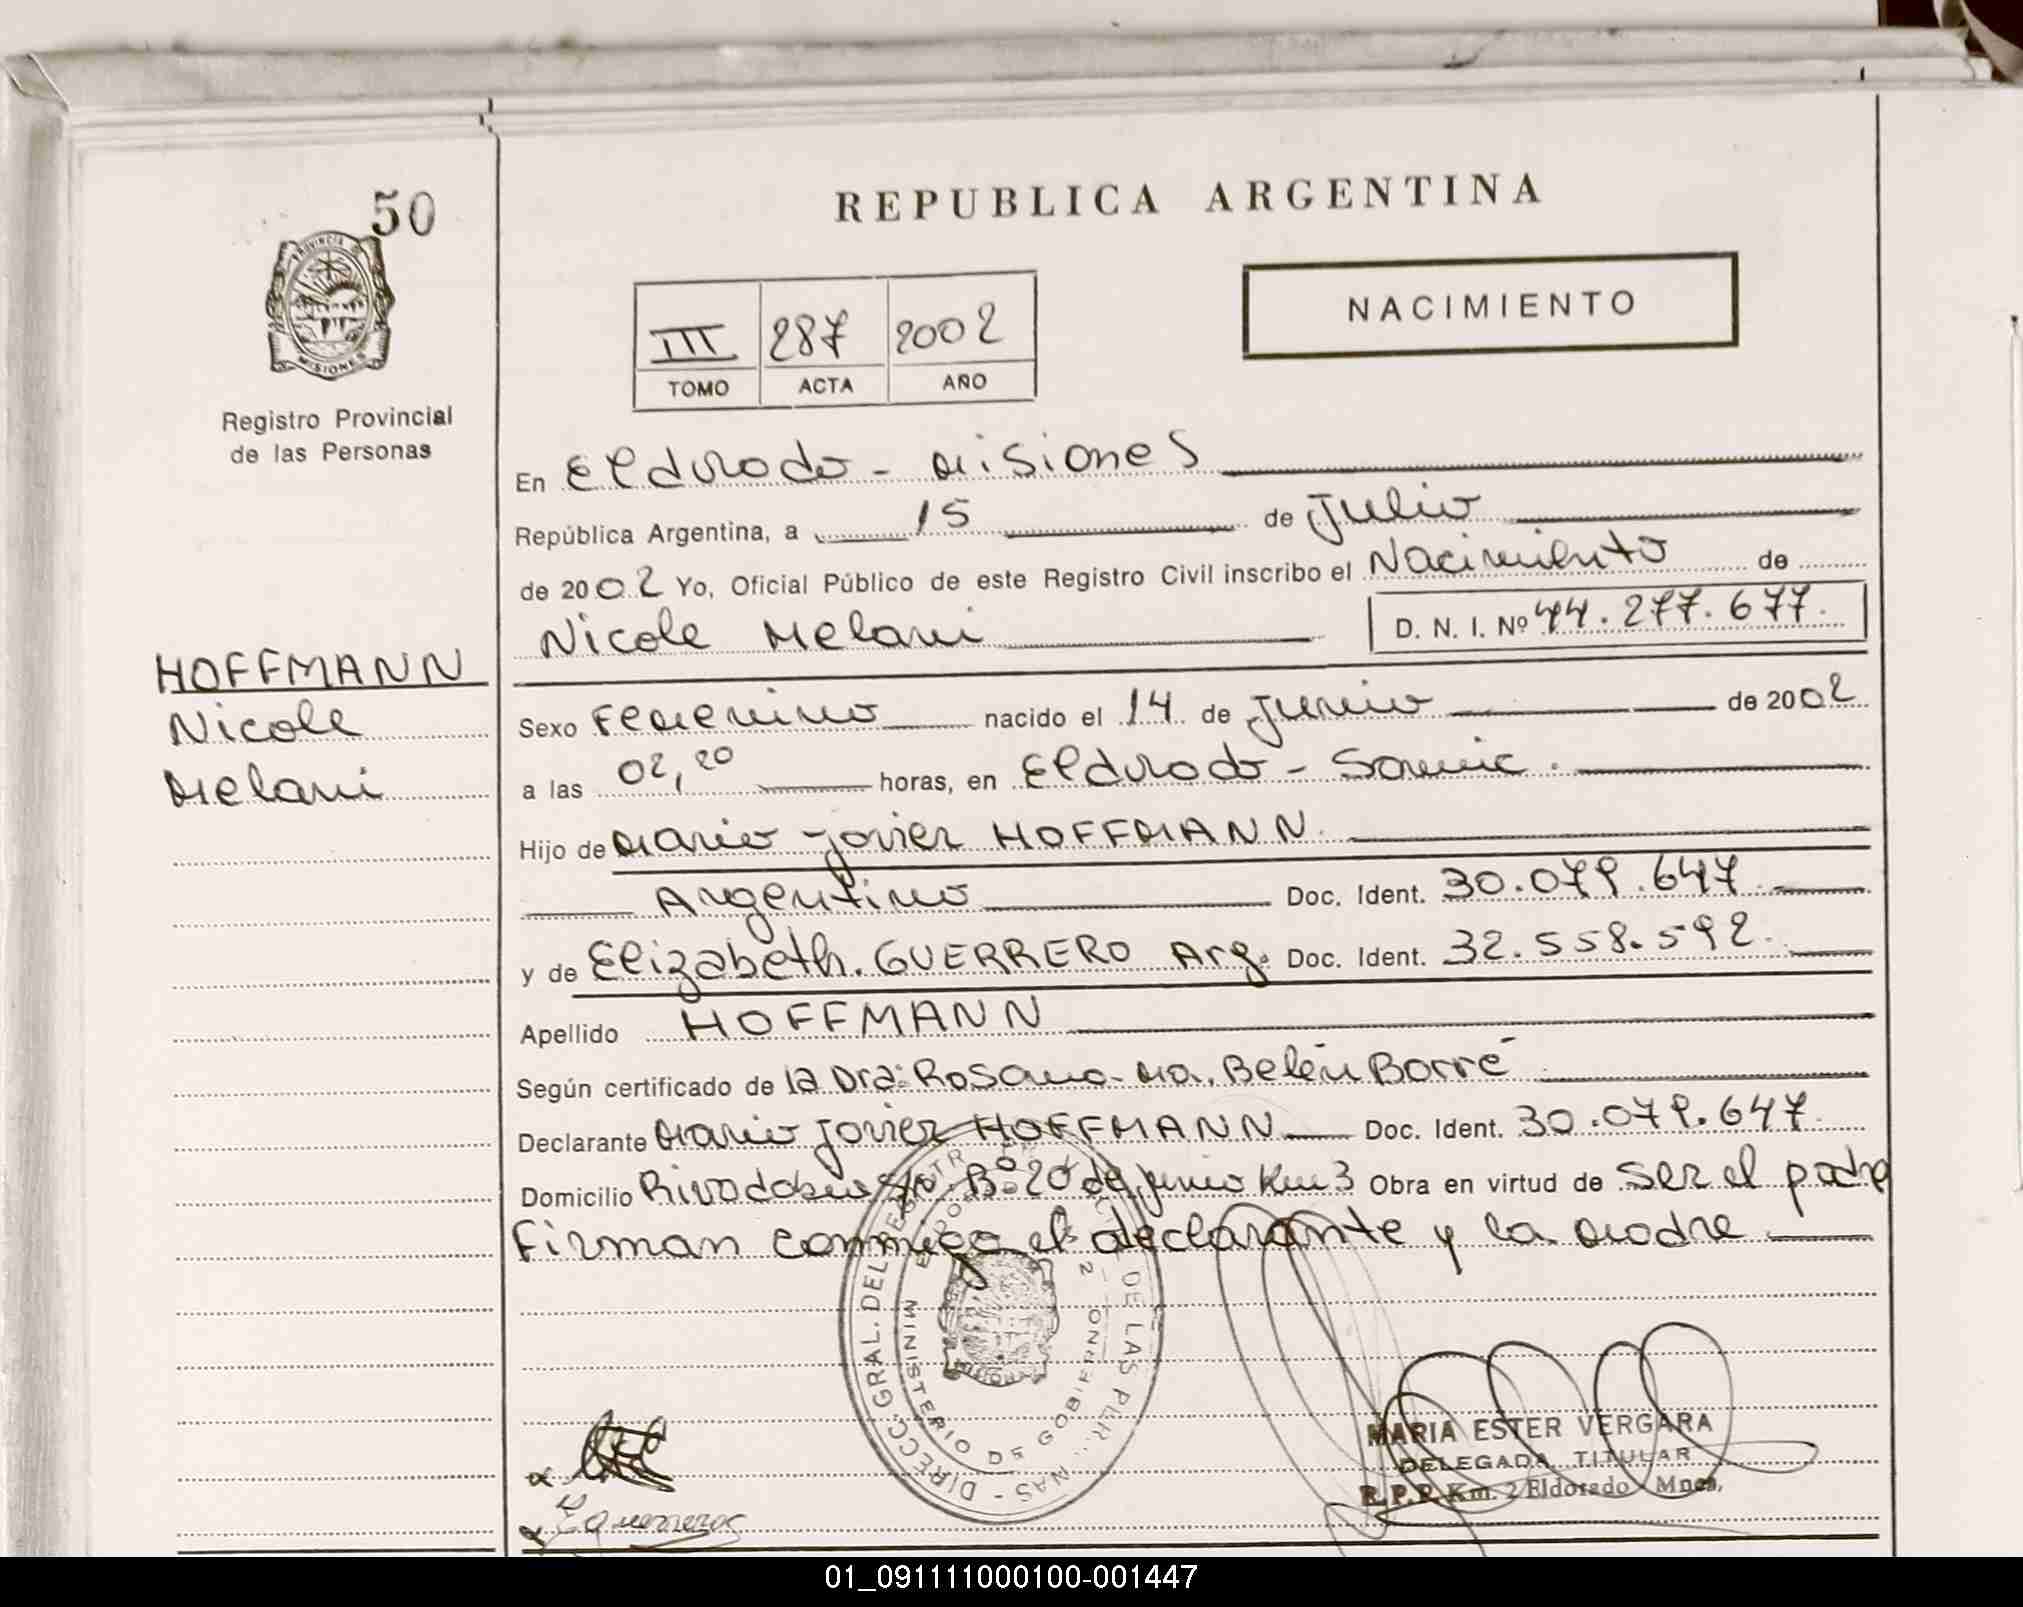 50
PROVINCIA DE
MISIONES
Registro Provincial
de las Personas
HOFFMANN
Nicole
Melani
REPUBLICA ARGENTINA
III 287 2002
TOMO ACTA AÑO
NACIMIENTO
En Eldorado - Misiones
República Argentina, a 15 de Julio
de 2002 Yo, Oficial Público de este Registro Civil inscribo el Nacimiento de
Nicole Melani D. N. I. Nº 44.277.677.
Sexo Femenino nacido el 14 de Junio de 2002
a las 02,20 horas, en Eldorado - Samic.
Hijo de Mario Javier HOFFMANN.
Argentino Doc. Ident. 30.079.647
y de Elizabeth. GUERRERO Arg. Doc. Ident. 32.558.592.
Apellido HOFFMANN
Según certificado de la Dra: Rosana Ma. Belén Borré
Declarante Mario Javier HOFFMANN Doc. Ident. 30.079.647.
Domicilio Rivadabia Bº 20 de junio Km 3 Obra en virtud de ser el padre
Firman conmigo el declarante y la madre
DIRECC. GRAL. DEL REGISTR DE LAS PER NAS -
MINISTERIO DE GOBIERNO
MARIA ESTER VERGARA
DELEGADA TITULAR
R.P.P. Km. 2 Eldorado Mnes.
01_091111000100-001447